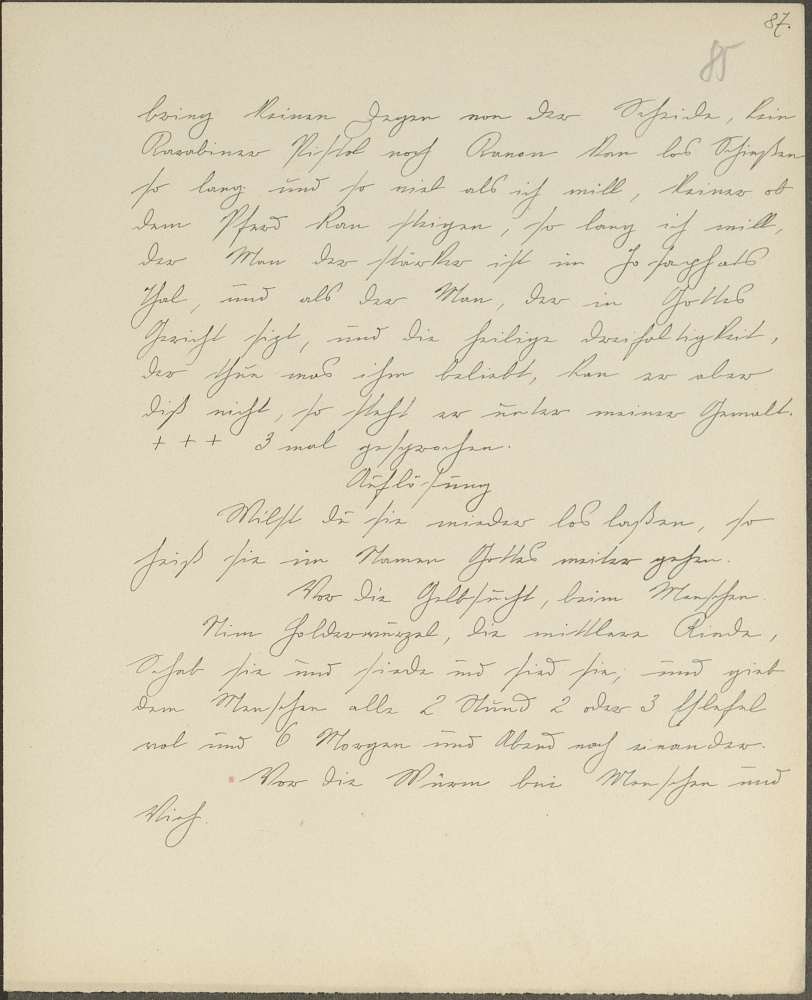 87.
85
bring keinen Degen von der Scheide, kein
Karabiner Pistol noch Kanon kan los Schießen
so lang und so viel als ich will, keiner ob
dem Pferd kan steigen, so lang ich will,
der Man der stärker ist im Josaphats
Thal, und als der Man, der in Gottes
Gericht sizt, und die heilige Dreifaltigkeit,
der thue was ihm beliebt, kan er aber
diß nicht, so steht er unter meiner Gewalt.
+ + + 3 mal gesprochen.
Auflösung
Wilst du sie wieder los laßen, so
heiß sie im Namen Gottes weiter gehen.
Vor die Gelbsucht, beim Menschen.
Nim Holderwurzel, die mittlere Rinde,
Schab sie und siede und sied sie, und gieb
dem Menschen alle 2 Stund 2 oder 3 Eßlefel
vol und 6 Morgen und Abend nach einander.
Vor die Würm bei Menschen und
Vieh.